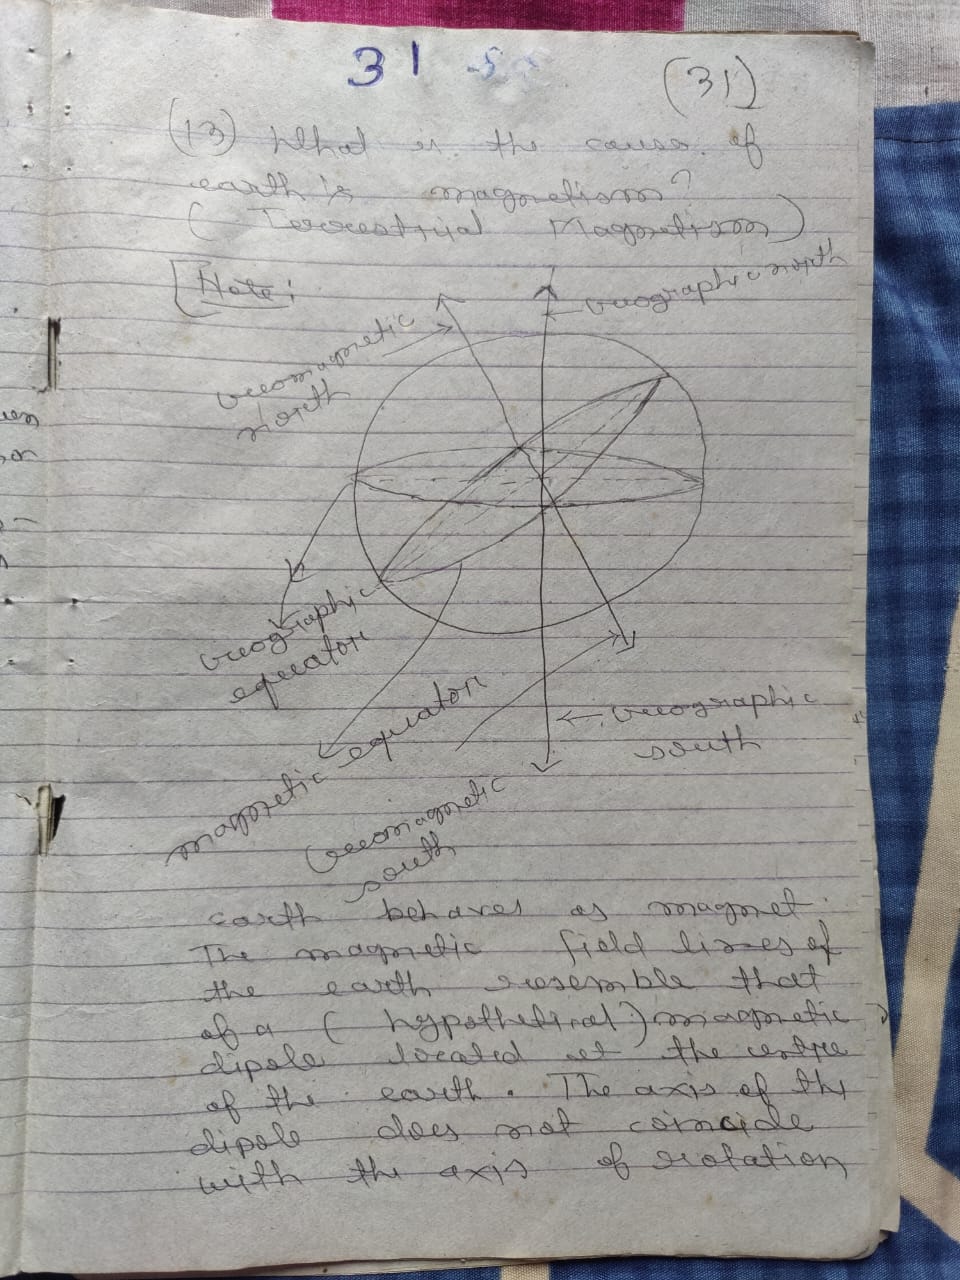 31
(31)
(13) What is the cause of
earth's magnetism?
(Terrestrial Magnetism)
Note:
Geographic north
Geomagnetic
north
Geographic
equator
magnetic equator
Geographic
south
Geomagnetic
south
earth behaves as magnet.
The magnetic field lines of
the earth resemble that
of a (hypothetical) magnetic
dipole located at the centre
of the earth. The axis of the
dipole does not coincide
with the axis of rotation